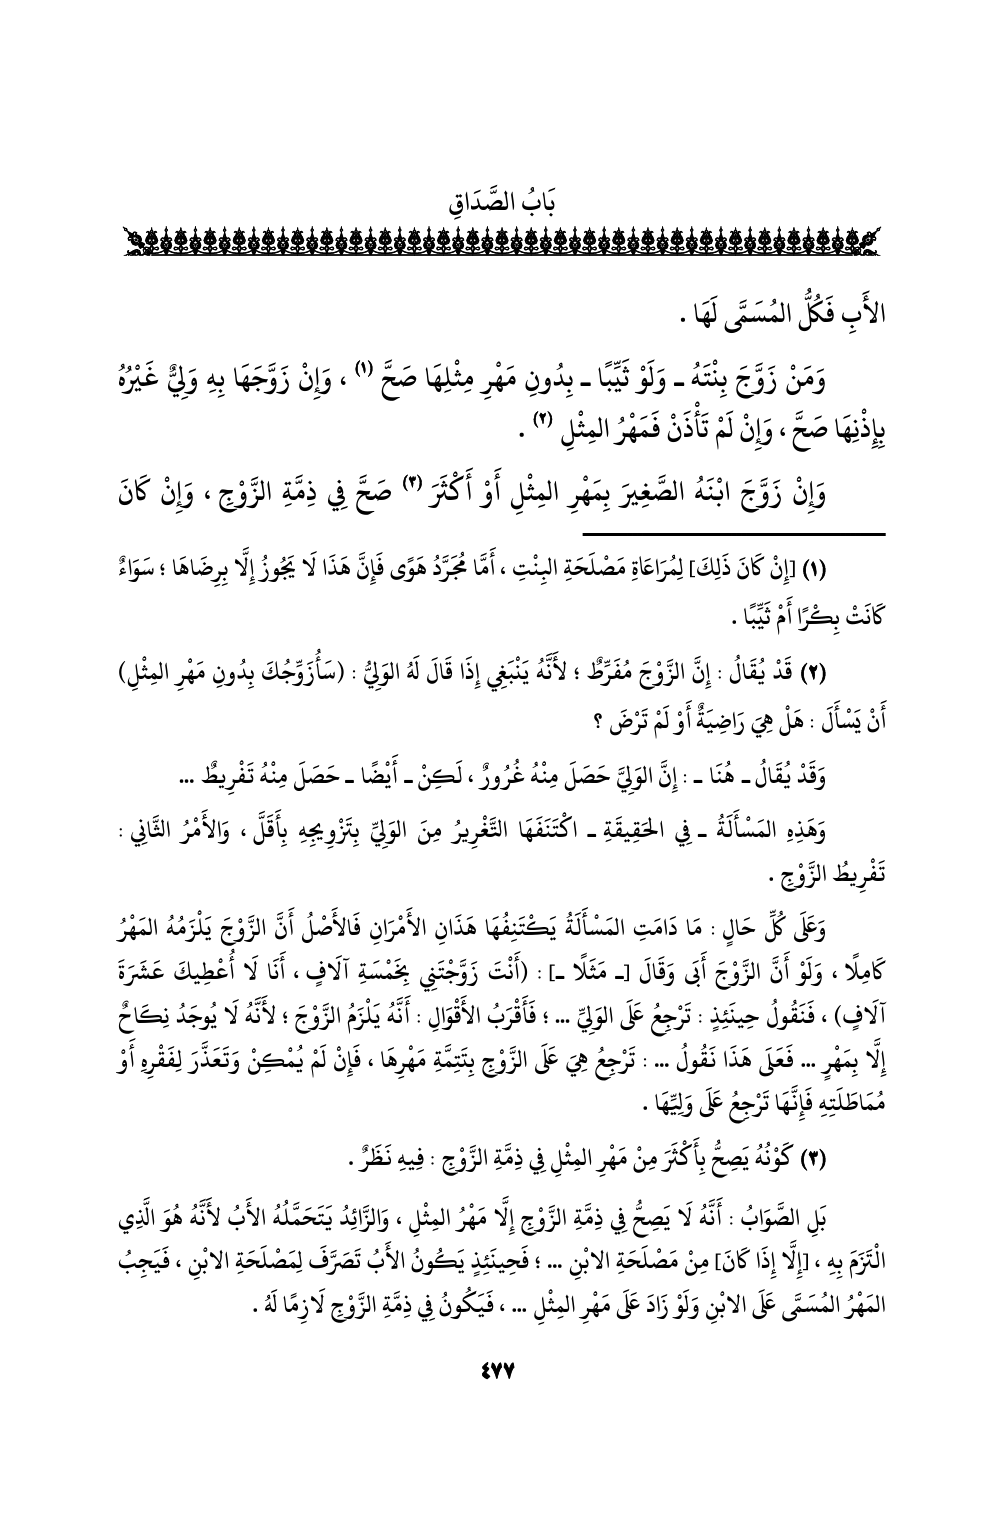 بَابُ الصَّدَاقِ
الأَبِ فَكُلُّ المُسَمَّى لَهَا .
وَمَنْ زَوَّجَ بِنْتَهُ ـ وَلَوْ ثَيِّبًا ـ بِدُونِ مَهْرِ مِثْلِهَا صَحَّ (١) ، وَإِنْ زَوَّجَهَا بِهِ وَلِيٌّ غَيْرُهُ
بِإِذْنِهَا صَحَّ ، وَإِنْ لَمْ تَأْذَنْ فَمَهْرُ المِثْلِ (٢) .
وَإِنْ زَوَّجَ ابْنَهُ الصَّغِيرَ بِمَهْرِ المِثْلِ أَوْ أَكْثَرَ (٣) صَحَّ فِي ذِمَّةِ الزَّوْجِ ، وَإِنْ كَانَ
(١) [إِنْ كَانَ ذَلِكَ] لِمُرَاعَاةِ مَصْلَحَةِ البِنْتِ ، أَمَّا مُجَرَّدُ هَوًى فَإِنَّ هَذَا لَا يَجُوزُ إِلَّا بِرِضَاهَا ؛ سَوَاءٌ
كَانَتْ بِكْرًا أَمْ ثَيِّبًا .
(٢) قَدْ يُقَالُ : إِنَّ الزَّوْجَ مُفَرِّطٌ ؛ لأَنَّهُ يَنْبَغِي إِذَا قَالَ لَهُ الوَلِيُّ : (سَأُزَوِّجُكَ بِدُونِ مَهْرِ المِثْلِ)
أَنْ يَسْأَلَ : هَلْ هِيَ رَاضِيَةٌ أَوْ لَمْ تَرْضَ ؟
وَقَدْ يُقَالُ ـ هُنَا ـ : إِنَّ الوَلِيَّ حَصَلَ مِنْهُ غُرُورٌ ، لَكِنْ ـ أَيْضًا ـ حَصَلَ مِنْهُ تَفْرِيطٌ ...
وَهَذِهِ المَسْأَلَةُ ـ فِي الحَقِيقَةِ ـ اكْتَنَفَهَا التَّغْرِيرُ مِنَ الوَلِيِّ بِتَزْوِيجِهِ بِأَقَلَّ ، وَالأَمْرُ الثَّانِي :
تَفْرِيطُ الزَّوْجِ .
وَعَلَى كُلِّ حَالٍ : مَا دَامَتِ المَسْأَلَةُ يَكْتَنِفُهَا هَذَانِ الأَمْرَانِ فَالأَصْلُ أَنَّ الزَّوْجَ يَلْزَمُهُ المَهْرُ
كَامِلًا ، وَلَوْ أَنَّ الزَّوْجَ أَبَى وَقَالَ [ـ مَثَلًا ـ] : (أَنْتَ زَوَّجْتَنِي بِخَمْسَةِ آلَافٍ ، أَنَا لَا أُعْطِيكَ عَشَرَةَ
آلَافٍ) ، فَنَقُولُ حِينَئِذٍ : تَرْجِعُ عَلَى الوَلِيِّ ... ؛ فَأَقْرَبُ الأَقْوَالِ : أَنَّهُ يَلْزَمُ الزَّوْجَ ؛ لأَنَّهُ لَا يُوجَدُ نِكَاحٌ
إِلَّا بِمَهْرٍ ... فَعَلَى هَذَا نَقُولُ ... : تَرْجِعُ هِيَ عَلَى الزَّوْجِ بِتَتِمَّةِ مَهْرِهَا ، فَإِنْ لَمْ يُمْكِنْ وَتَعَذَّرَ لِفَقْرِهِ أَوْ
مُمَاطَلَتِهِ فَإِنَّهَا تَرْجِعُ عَلَى وَلِيِّهَا .
(٣) كَوْنُهُ يَصِحُّ بِأَكْثَرَ مِنْ مَهْرِ المِثْلِ فِي ذِمَّةِ الزَّوْجِ : فِيهِ نَظَرٌ .
بَلِ الصَّوَابُ : أَنَّهُ لَا يَصِحُّ فِي ذِمَّةِ الزَّوْجِ إِلَّا مَهْرُ المِثْلِ ، وَالزَّائِدُ يَتَحَمَّلُهُ الأَبُ لأَنَّهُ هُوَ الَّذِي
الْتَزَمَ بِهِ ، [إِلَّا إِذَا كَانَ] مِنْ مَصْلَحَةِ الابْنِ ... ؛ فَحِينَئِذٍ يَكُونُ الأَبُ تَصَرَّفَ لِمَصْلَحَةِ الابْنِ ، فَيَجِبُ
المَهْرُ المُسَمَّى عَلَى الابْنِ وَلَوْ زَادَ عَلَى مَهْرِ المِثْلِ ... ، فَيَكُونُ فِي ذِمَّةِ الزَّوْجِ لَازِمًا لَهُ .
٤٧٧